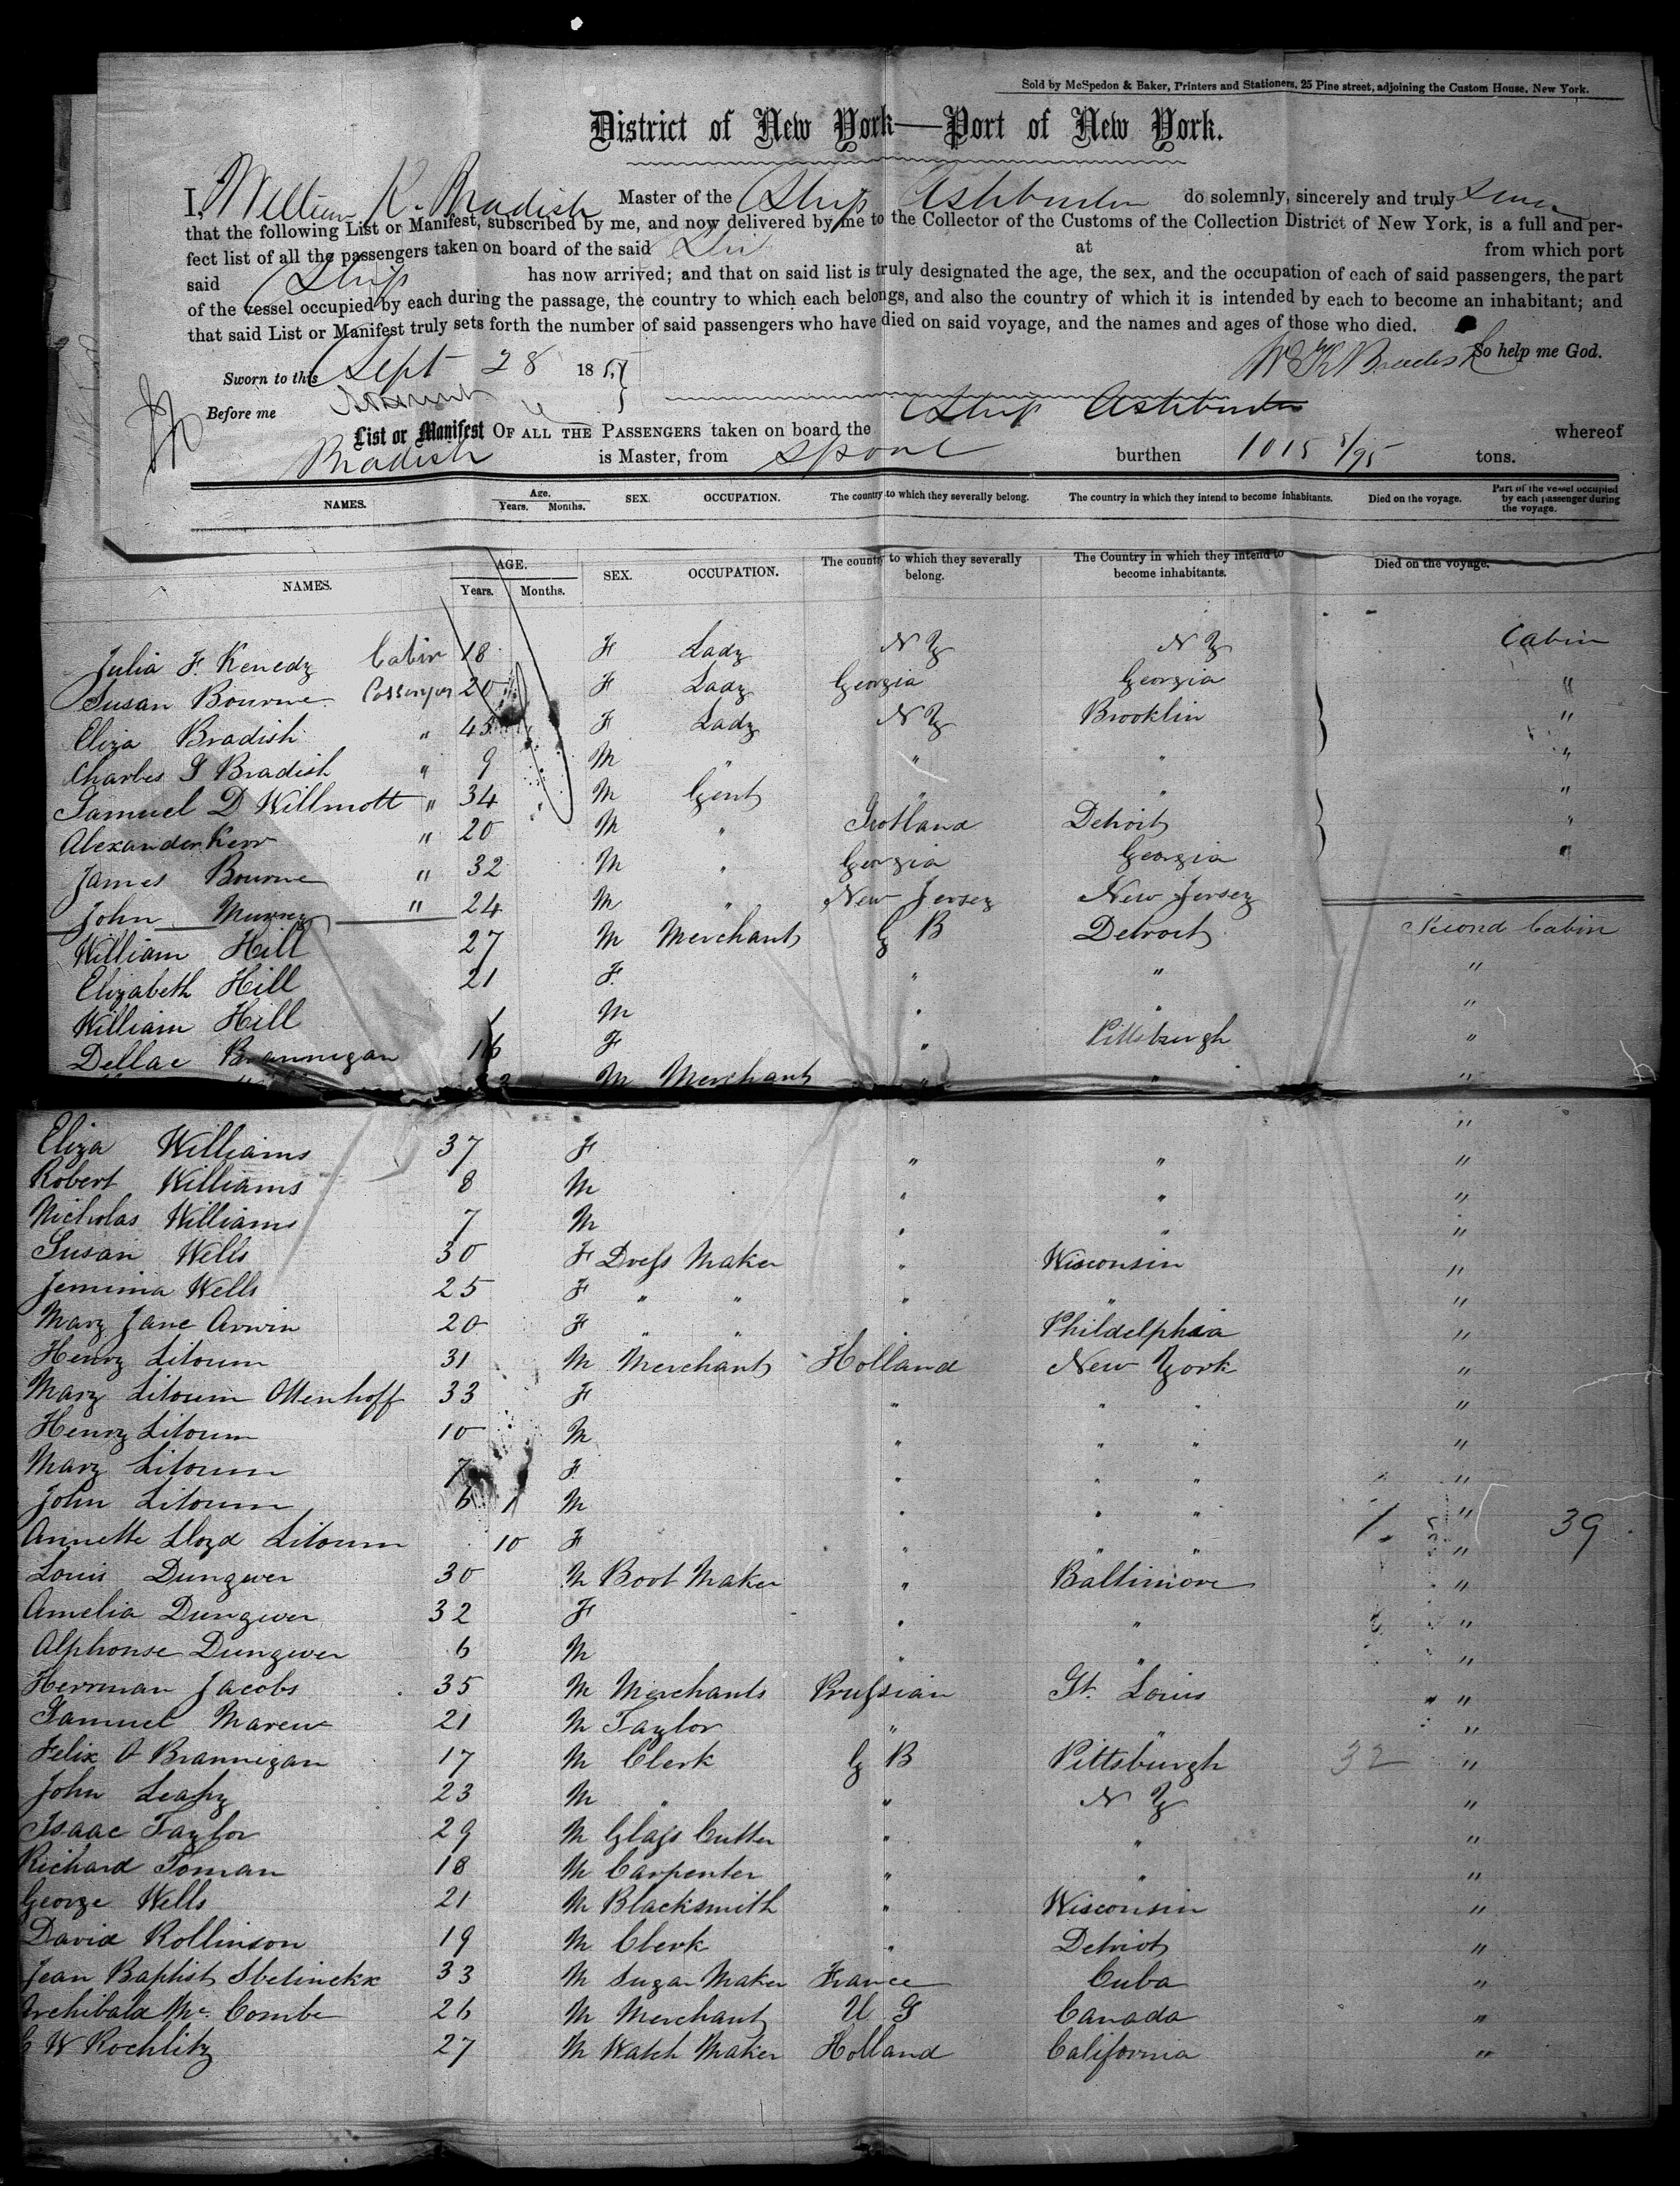 Sold by McSpedon & Baker, Printers and Stationers, 25 Pine street, adjoining the Custom House, New York.
District of New York—Port of New York.
I, William K. Bradish Master of the Ship Ashburton do solemnly, sincerely and truly swear
that the following List or Manifest, subscribed by me, and now delivered by me to the Collector of the Customs of the Collection District of New York, is a full and per-
fect list of all the passengers taken on board of the said at from which port
said Ship has now arrived; and that on said list is truly designated the age, the sex, and the occupation of each of said passengers, the part
of the vessel occupied by each during the passage, the country to which each belongs, and also the country of which it is intended by each to become an inhabitant; and
that said List or Manifest truly sets forth the number of said passengers who have died on said voyage, and the names and ages of those who died.
So help me God.
Wm K Bradish
Sworn to this Sept 28 185
Before me
List or Manifest OF ALL THE PASSENGERS taken on board the Ship Ashburton whereof
Bradish is Master, from Lpool burthen 1015 8/95 tons.
NAMES. Age. Years. Months. SEX. OCCUPATION. The country to which they severally belong. The country in which they intend to become inhabitants. Died on the voyage. Part of the vessel occupied by each passenger during the voyage.
NAMES. AGE. Years. Months. SEX. OCCUPATION. The country to which they severally belong. The Country in which they intend to become inhabitants. Died on the voyage.
Julia F. Kenedy Cabin 18 F Lady N Y N Y Cabin
Susan Bourne Passenger 20 F Lady Georgia Georgia "
Eliza Bradish " 45 F Lady N Y Brooklin "
Charles G Bradish " 9 M " " " "
Samuel D Willmott " 34 M Gent " " "
Alexander Kerr " 20 M " Scotland Detroit "
James Bourne " 32 M " Georgia Georgia "
John Murrey " 24 M " New Jersey New Jersey
William Hill 27 M Merchant G B Detroit Second Cabin
Elizabeth Hill 21 F " " "
William Hill 1 M " " "
Dellae Brannigan 16 F " Pittsburgh "
M Merchant " " "
Eliza Williams 37 F " " "
Robert Williams 8 M " " "
Nicholas Williams 7 M " " "
Susan Wells 30 F Dress Maker " Wisconsin "
Jemima Wells 25 F " " " " "
Mary Jane Arwin 20 F " " " Phildelphia "
Henry Litoum 31 M Merchant Holland New York "
Mary Litoum Ottenhoff 33 F " " " "
Henry Litoum 10 M " " " "
Mary Litoum 7 F " " " "
John Litoum 6 1 M " " " "
Annette Lloyd Litoum 10 F " " " " 1 39
Louis Dungwer 30 M Boot Maker " Baltimore "
Amelia Dungwer 32 F " " "
Alphonse Dungwer 6 M " " "
Herrman Jacobs 35 M Merchants Prussian St. Louis "
Samuel Marew 21 M Taylor " " "
Felix O Brannigan 17 M Clerk G B Pittsburgh 32 "
John Leahy 23 M " " N Y "
Isaac Taylor 29 M Glass Cutter " " "
Richard Toman 18 M Carpenter " " "
George Wells 21 M Blacksmith " Wisconsin "
David Rollinson 19 M Clerk " Detriot "
Jean Baptist Sbelinckx 33 M Sugar Maker France Cuba "
Archibald Mc Combe 26 M Merchant U S Canada "
W Rochlitz 27 M Watch Maker Holland California "